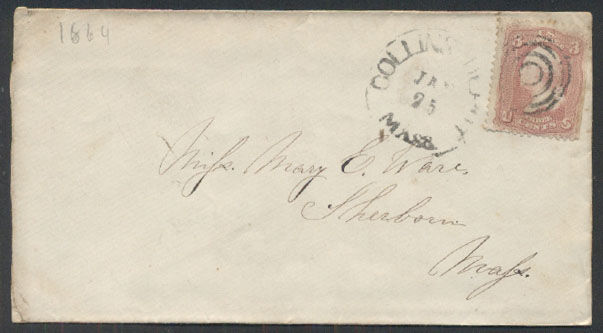 1864
COLLINS DEPOT
JAN
25
MASS
3 3
U S
CENTS
Miss. Mary E. Ware.
Sherborn
Mass.